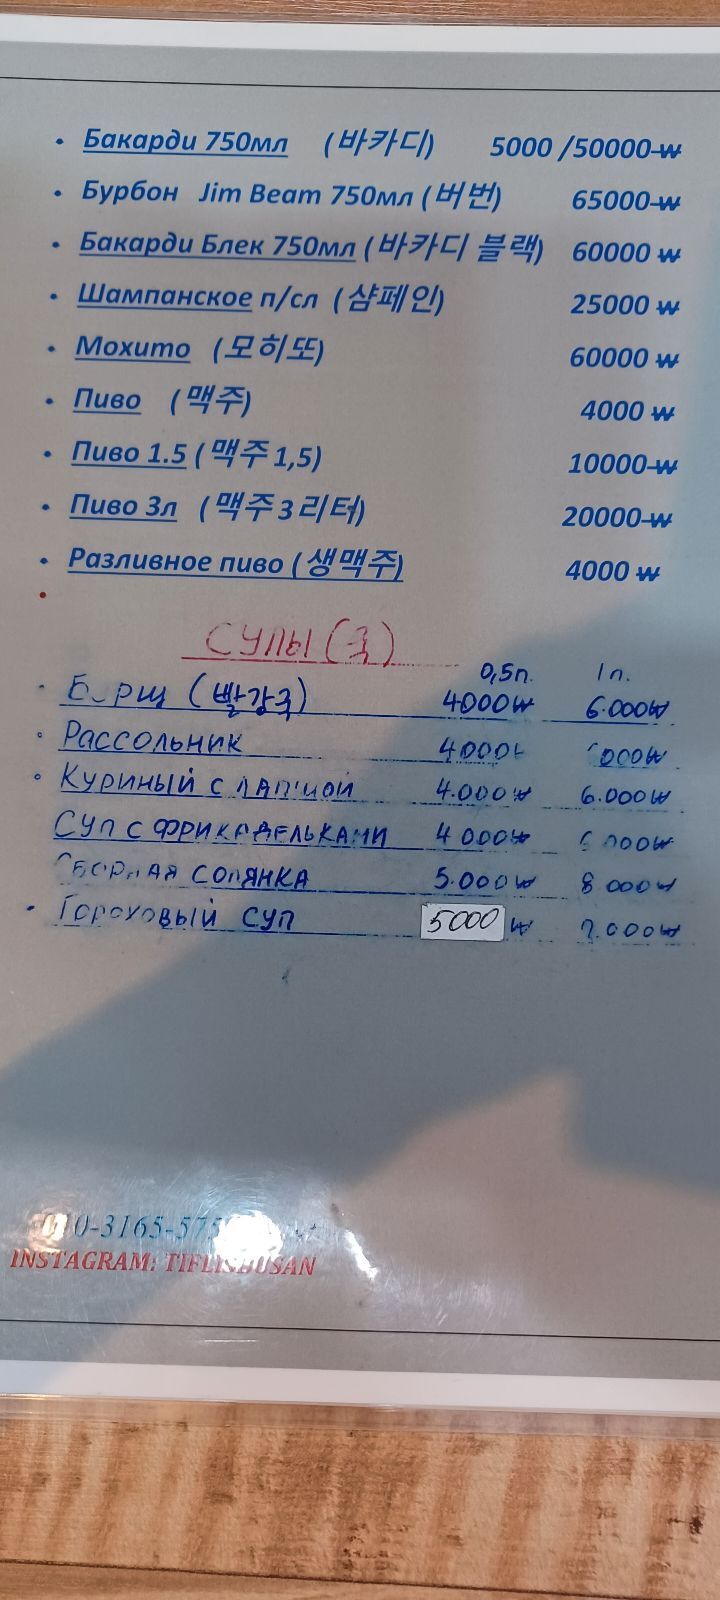 • Бакарди 750мл (바카디) 5000 /50000 ₩
• Бурбон Jim Beam 750мл (버번) 65000 ₩
• Бакарди Блек 750мл (바카디 블랙) 60000 ₩
• Шампанское п/сл (샴페인) 25000 ₩
• Мохито (모히또) 60000 ₩
• Пиво (맥주) 4000 ₩
• Пиво 1.5 (맥주 1,5) 10000 ₩
• Пиво 3л (맥주 3 리터) 20000 ₩
• Разливное пиво (생맥주) 4000 ₩
•
СУПЫ (국)
0,5п. 1п.
• Борщ (빨강국) 4000₩ 6.000₩
• РАССОЛЬНИК 4000
• Куриный с лапшой 4.000₩ 6.000₩
Суп с фрикадельками 4 000₩
СОЛЯНКА 5.000₩ 8 000₩
• Гороховый суп 5000 ₩ 7.000₩
INSTAGRAM: TIFLISBUSAN